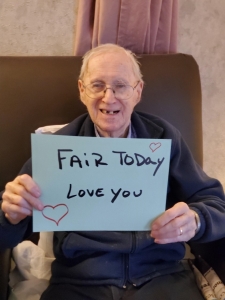 FAir TODay
LOVE YOU